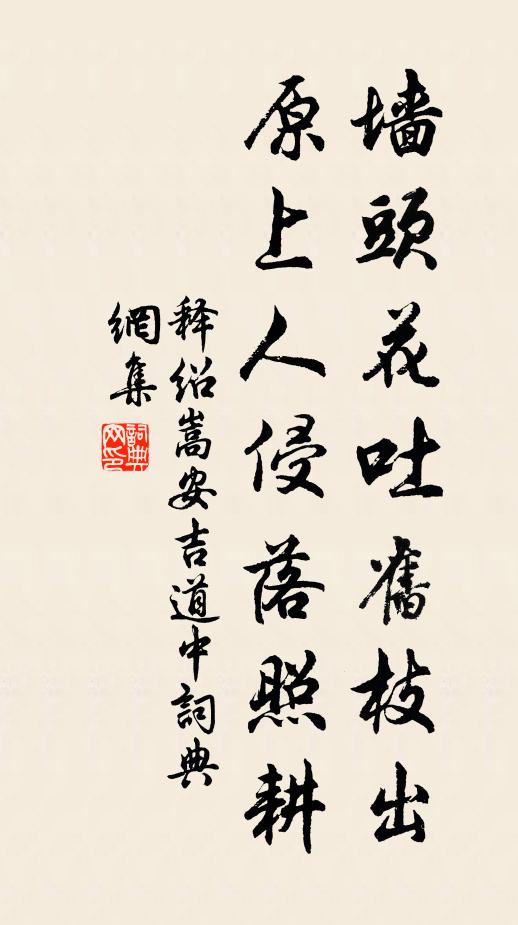 墙頭花吐舊枝出
原上人侵落照耕
释绍嵩安吉道中詞典
網集
詞典网印